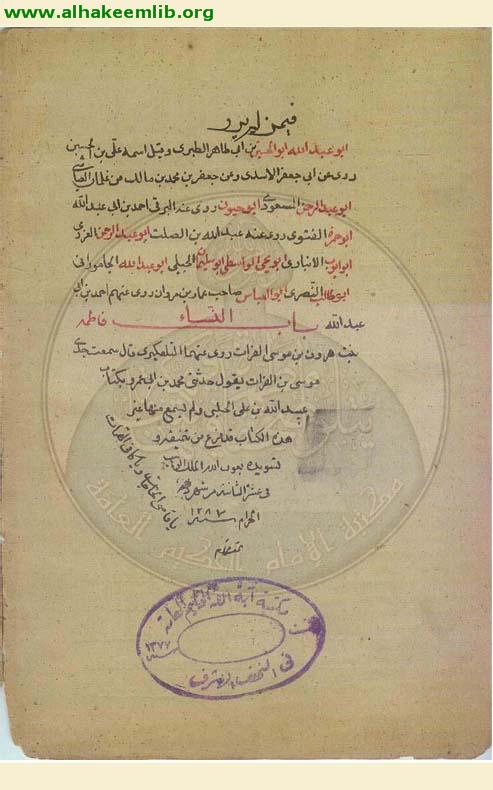 www.alhakeemlib.org
فيمن لم يرو
ابو عبد الله ابو الحسين بن ابي طاهر الطبري وقيل اسمه علي بن الحسين
روى عن ابي جعفر الاسدى وعن جعفر بن محمد بن مالك من غلمان العياشي
ابو عبد الرحمن المسعودي ابو حيون روى عنه البرقي احمد بن ابي عبد الله
ابو حمزة الغنوى روى عنه عبد الله بن الصلت ابو عبد الرحمن العزرمي
ابو ايوب الانبارى ابو يحيى الواسطي ابو سليمان الجبلى ابو عبد الله الجامورانى
ابو طالب البصرى ابو العباس صاحب عمار بن مروان روى عنهم احمد بن ابي
عبد الله باب النساء فاطمة
بنت هرون بن موسى الفرات روى عنها التلعكبري قال سمعت جدي
موسى بن الفرات يقول حدثنى محمد بن ابي عمير بكتاب
عبيد الله بن على الحلبى ولم يسمع منها غير
هذه الكتاب قد فرغ من تنميقه و
تسويده بعون الله الملك
فى عشر الثامنة من شهر
الحرام سنة ١٢٨٧
يا قاضى الحاجات ويا كافى المهمات
مكتبة آية الله الحكيم العامة
١٣٧٧
في النجف الاشرف
مكتبة الإمام الحكيم العامة